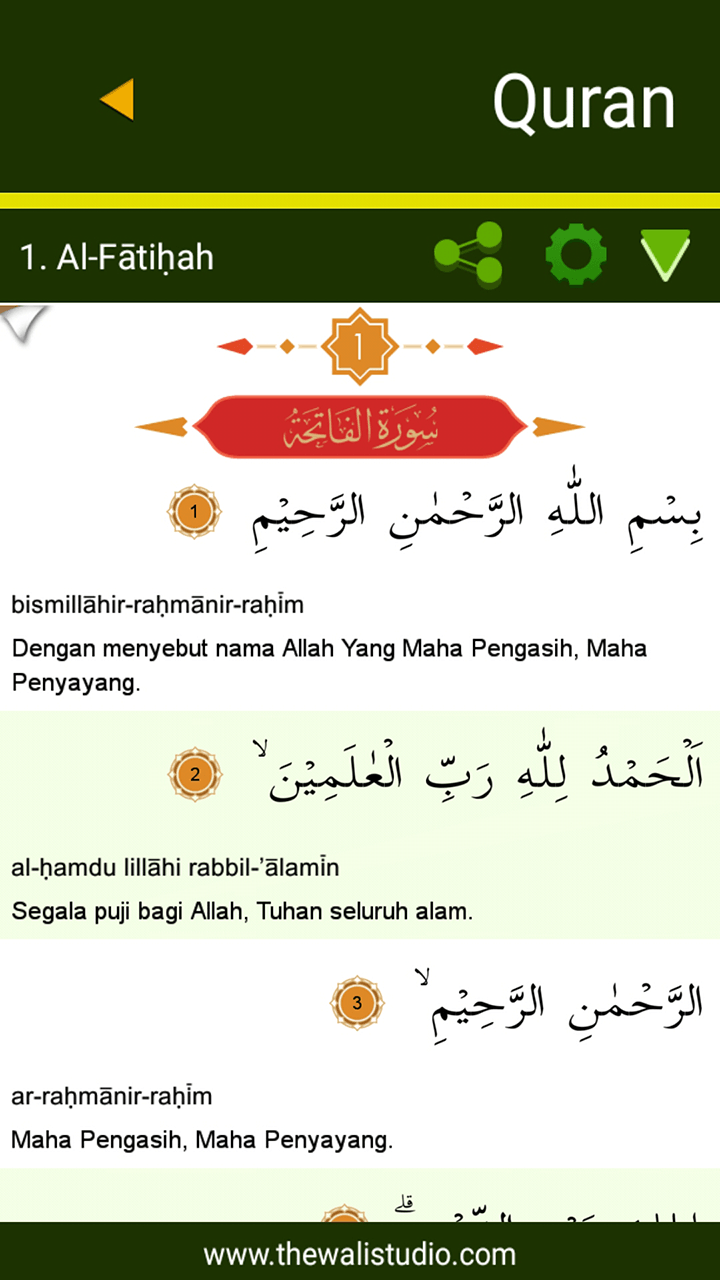 Quran
1. Al-Fātiḥah
1
سُورَةُ الفَاتِحَةُ
بِسْمِ اللّٰهِ الرَّحْمٰنِ الرَّحِيْمِ 1
bismillāhir-raḥmānir-raḥīm
Dengan menyebut nama Allah Yang Maha Pengasih, Maha
Penyayang.
اَلْحَمْدُ لِلّٰهِ رَبِّ الْعٰلَمِيْنَ ۙ 2
al-ḥamdu lillāhi rabbil-’ālamīn
Segala puji bagi Allah, Tuhan seluruh alam.
الرَّحْمٰنِ الرَّحِيْمِ ۙ 3
ar-raḥmānir-raḥīm
Maha Pengasih, Maha Penyayang.
www.thewalistudio.com